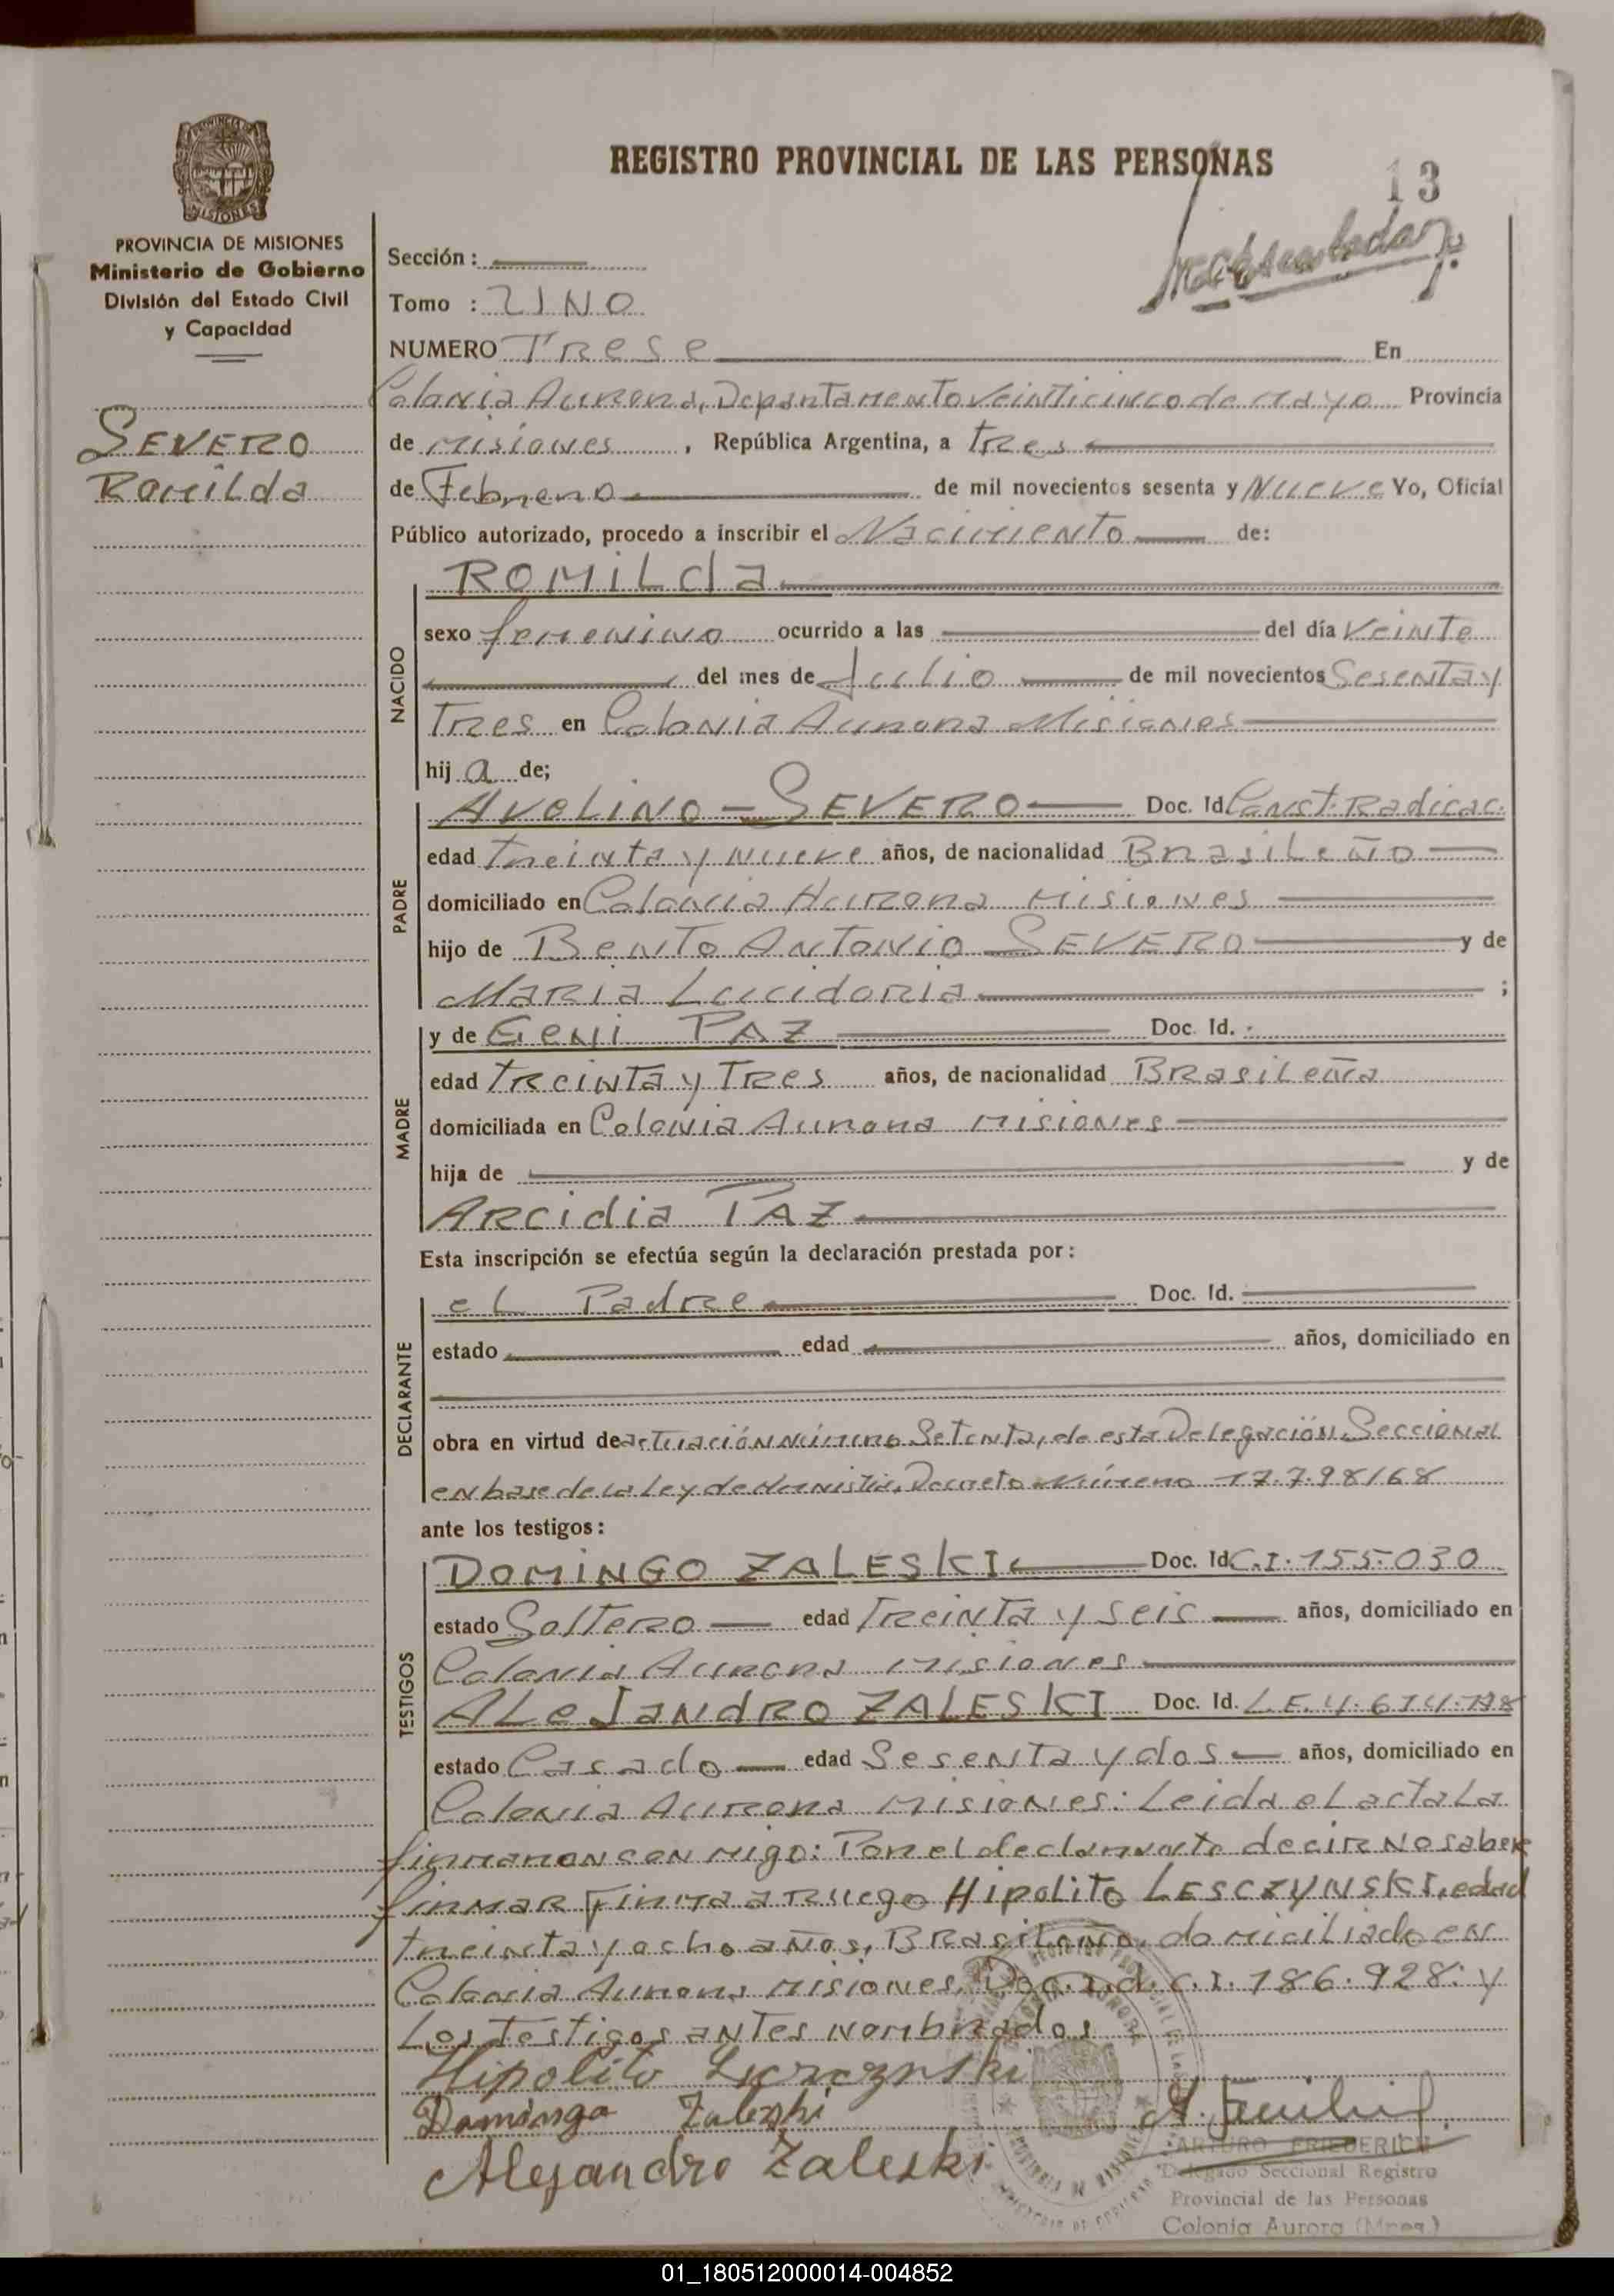 REGISTRO PROVINCIAL DE LAS PERSONAS
13
PROVINCIA DE MISIONES
Ministerio de Gobierno
División del Estado Civil
y Capacidad
SEVERO
Romilda
Sección :
Tomo : UNO
NUMERO Trese En
Colonia Aurora, Departamento Veinticinco de mayo Provincia
de Misiones , República Argentina, a tres
de Febrero de mil novecientos sesenta y Nueve Yo, Oficial
Público autorizado, procedo a inscribir el Nacimiento de:
NACIDO
ROMILda
sexo femenino ocurrido a las del día Veinte
del mes de Julio de mil novecientos Sesenta y
Tres en Colonia Aurora Misiones
hij a de;
PADRE
AVELINO - SEVERO Doc. Id Const. Radicac.
edad treinta y nueve años, de nacionalidad Brasileño
domiciliado en Colonia Aurora Misiones
hijo de Bento Antonio SEVERO y de
Maria Lucidoria ;
MADRE
y de Geni PAZ Doc. Id. :
edad treinta y Tres años, de nacionalidad Brasileña
domiciliada en Colonia Aurora Misiones
hija de y de
Arcidia PAZ
Esta inscripción se efectúa según la declaración prestada por:
DECLARANTE
el Padre Doc. Id.
estado edad años, domiciliado en
obra en virtud de actuación número Setenta, de esta Delegación Seccional
en base de la Ley de Amnistia, Decreto Número 17.798/68
ante los testigos:
TESTIGOS
DOMINGO ZALESKI Doc. Id C.I. 155.030
estado Soltero edad Treinta y seis años, domiciliado en
Colonia Aurora Misiones
ALEJANDRO ZALESKI Doc. Id. L.E. 4.614.
estado Casado edad Sesenta y dos años, domiciliado en
Colonia Aurora Misiones: Leida el acta La
firmaron con migo: Por el declarante decir No saber
firmar Firma a ruego Hipolito LESCZYNSKI, edad
treinta y ocho años, Brasileño, domiciliado en
Colonia Aurora Misiones, Doc. Id. C.I. 186.928: y
Los testigos antes nombrados
Hipolito
Domingo Zaleski
Alejandro Zaleski
ARTURO FRIEDERICH
Delegado Seccional Registro
Provincial de las Personas
Colonia Aurora (Mnes.)
01_180512000014-004852